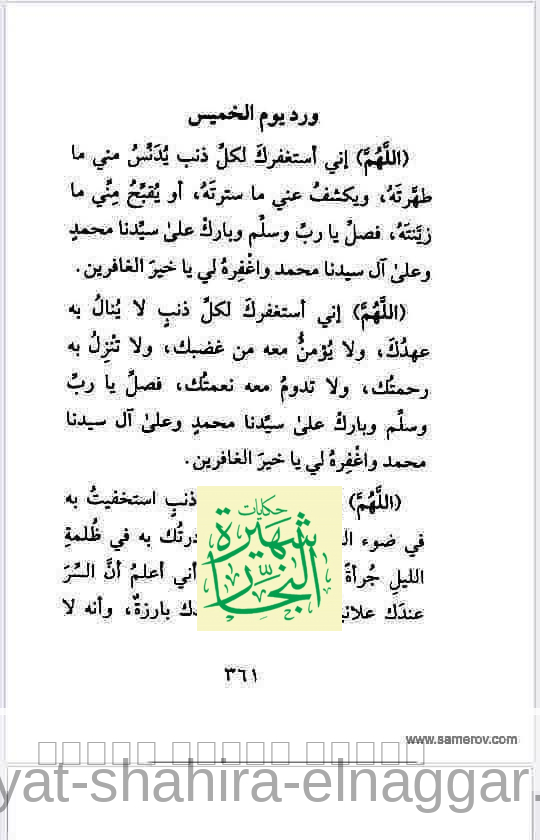 ورد يوم الخميس
(اللَّهُمَّ) إني أستغفركَ لكلِّ ذنب يُدَنِّسُ مني ما
طهَّرتَهُ، ويكشفُ عني ما سترتَهُ، أو يُقبِّحُ مِنِّي ما
زيَّنتَهُ، فصلِّ يا ربِّ وسلِّم وباركْ علىٰ سيِّدنا محمدٍ
وعلىٰ آل سيدنا محمد واغْفِرهُ لي يا خيرَ الغافرين.
(اللَّهُمَّ) إني أستغفركَ لكلِّ ذنبٍ لا يُنالُ به
عهدُكَ، ولا يُؤمنُ معه من غضبك، ولا تنْزِلُ به
رحمتُك، ولا تدومُ معه نعمتُك، فصلِّ يا ربِّ
وسلِّم وباركْ علىٰ سيِّدنا محمدٍ وعلىٰ آل سيدنا
محمد واغْفِرهُ لي يا خيرَ الغافرين.
(اللَّهُمَّ) ذنبٍ استخفيتُ به
في ضوء به في ظُلمةِ
الليلِ جُرأةً أني أعلمُ أنَّ السِّرَ
عندَك بارزةٌ، وأنه لا
حكايات
شهيرة
النجار
٣٦١
www.samerov.com
yat-shahira-elnaggar.